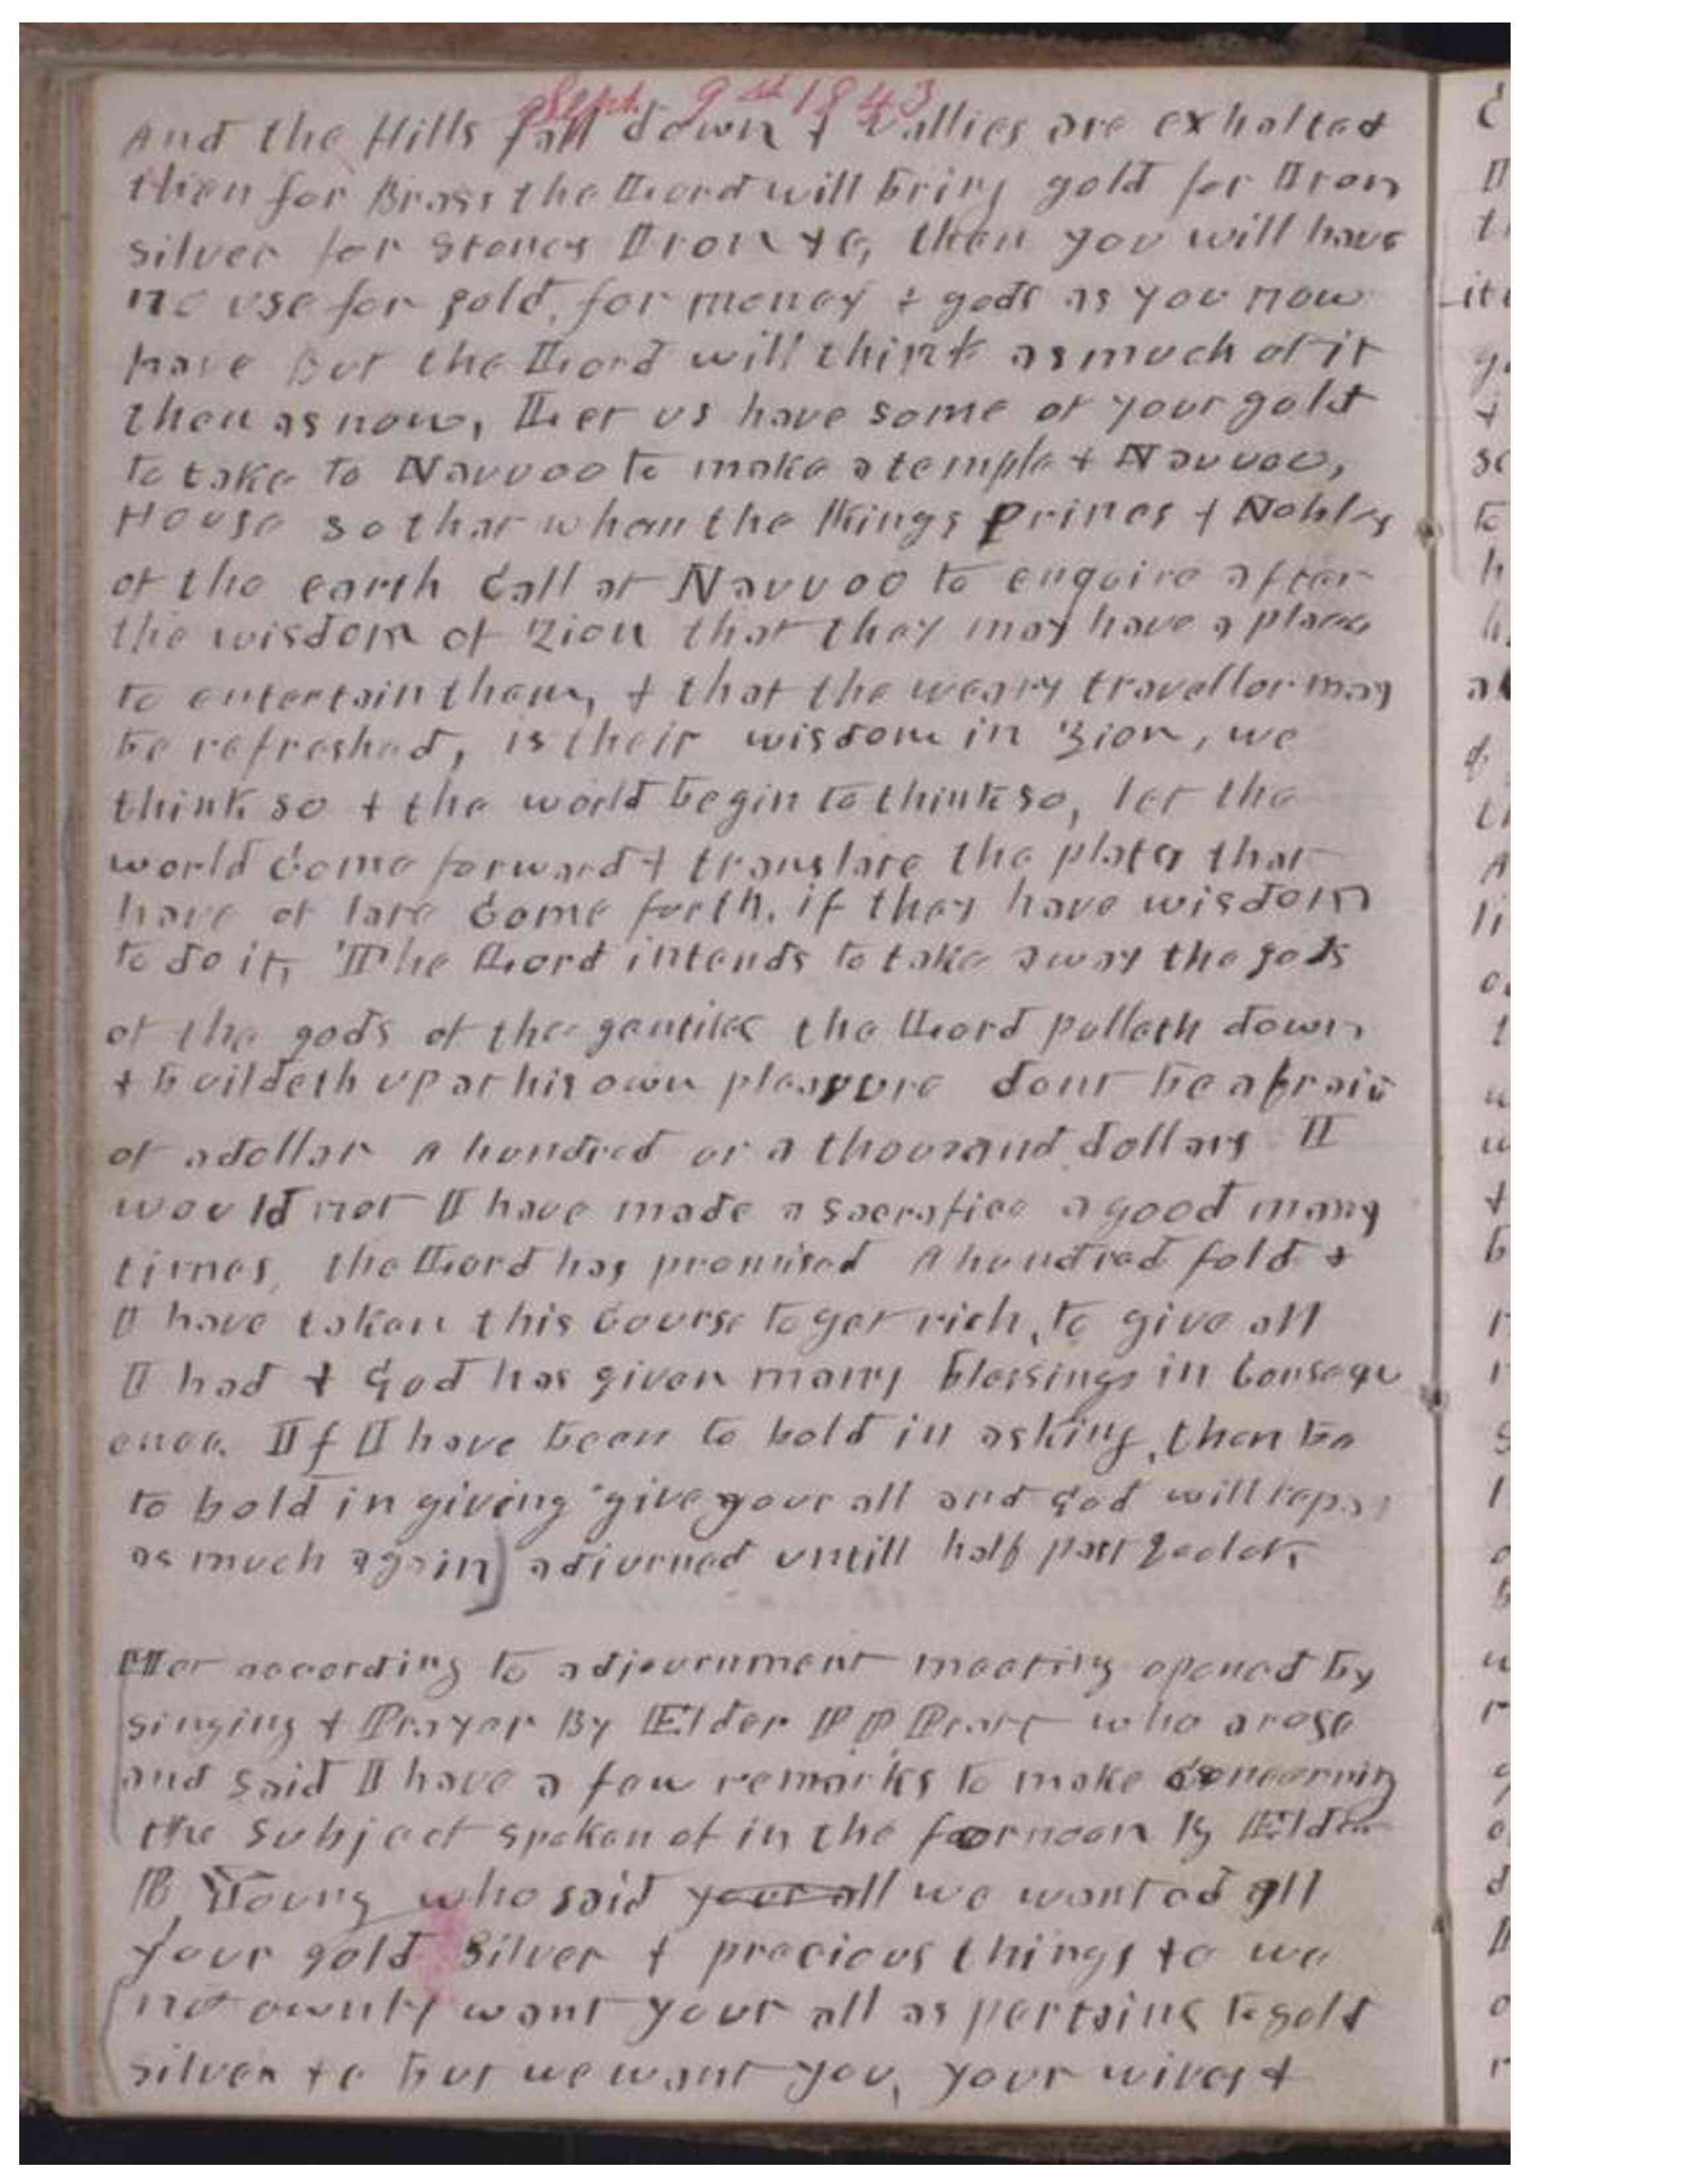 Sept. 9th 1843
And the Hills fall down & Vallies are exhalted
then for Brass the Lord will bring gold for Iron
silver for Stones Iron &c, then you will have
no use for gold, for money & gods as you now
have But the Lord will think as much of it
then as now, Let us have some of your gold
to take to Nauvoo to make a temple & Nauvoo,
House so that when the Kings Princs & Nobles
of the earth Call at Nauvoo to enquire after
the wisdom of Zion that they may have a place
to entertain them, & that the weary travellor may
be refreshed, is their wisdom in Zion, we
think so & the world begin to think so, let the
world Come forward & translate the plates that
have of late Come forth, if they have wisdom
to do it, The Lord intends to take away the gods
of the gods of the gentiles the Lord pulleth down
& buildeth up at his own pleasure dont be afraid
of a dollar A hundred or a thousand dollars I
would not I have made a sacrafice a good many
times, the Lord has promised A hundred fold &
I have taken this Course to get rich, to give all
I had & God has given many blessings in Consequ
ence. If I have been to bold in asking, then be
to bold in giving give your all and God will repay
as much again) adjurned untill half past 2 oclok,
Met according to adjournment meeting opened by
singing & Prayer By Elder P P Pratt who arose
and said I have a few remarks to make concerning
the Subject spoken of in the foornoon by Elder
B Young who said your all we wanted all
your gold silver & precious things &c we
not ownly want your all as pertains to gold
silver &c but we want you, your wives &